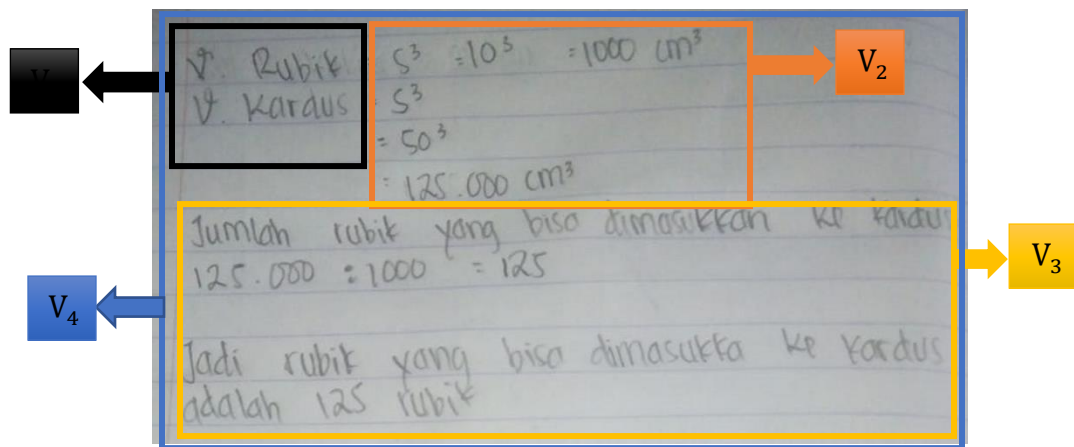 V. Rubik = S³ = 10³ = 1000 cm³
V. Kardus = S³
= 50³
= 125.000 cm³
Jumlah rubik yang bisa dimasukkan ke kardus
125.000 : 1000 = 125
Jadi rubik yang bisa dimasukka ke kardus
adalah 125 rubik
V
V₂
V₃
V₄